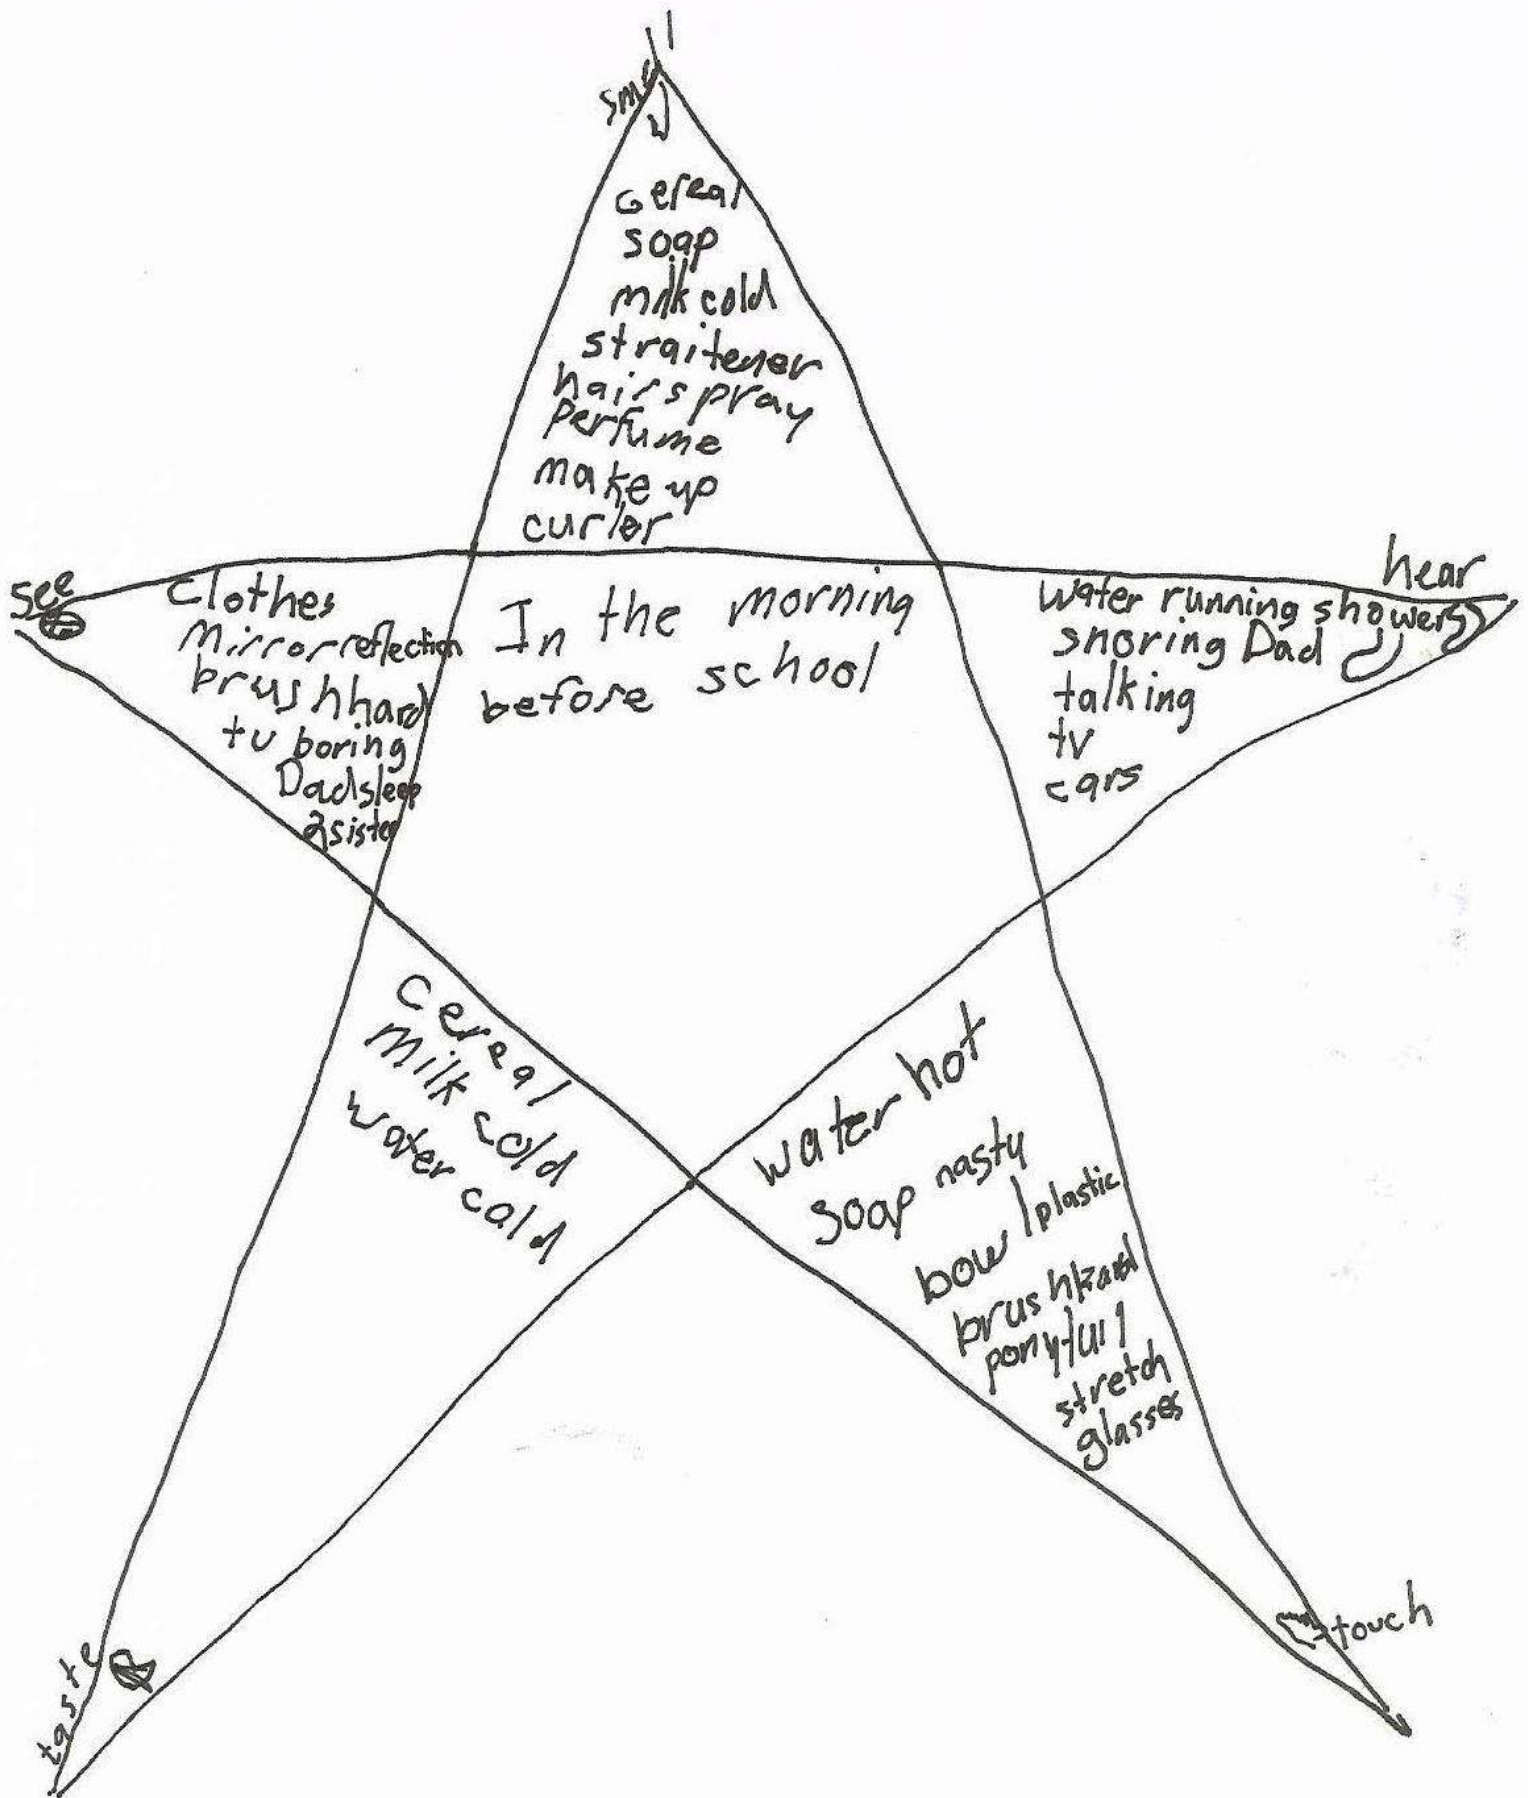 smell
cereal
soap
milk cold
straitener
hairspray
Perfume
make up
curler
see
clothes
Mirror reflection
brush hard
tv boring
Dad sleep
2 sister
In the morning
before school
hear
Water running showers
snoring Dad
talking
tv
cars
cereal
Milk cold
water cald
taste
water hot
soap nasty
bowl plastic
brush hard
ponytail
stretch
glasses
touch